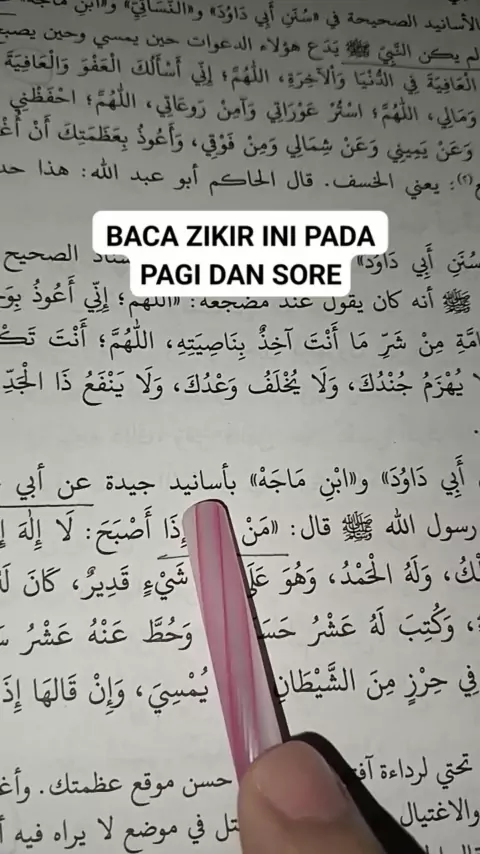 الأسانيد الصحيحة في «سُنَنِ أَبِي دَاوُدَ» و«النَّسَائِيِّ» و«ابْنِ
لم يكن النَّبِيُّ ﷺ يَدَع هؤلاء الدعوات حين يمسي وحين
الْعَافِيَةَ فِي الدُّنْيَا وَالْآخِرَةِ، اللَّهُمَّ؛ إِنِّي أَسْأَلُكَ الْعَفْوَ وَالْعَافِيَةَ
وَمَالِي، اللَّهُمَّ؛ اسْتُرْ عَوْرَاتِي وَآمِنْ رَوْعَاتِي، اللَّهُمَّ؛ احْفَظْنِي
وَعَنْ يَمِينِي وَعَنْ شِمَالِي وَمِنْ فَوْقِي، وَأَعُوذُ بِعَظَمَتِكَ أَنْ
(٢): يعني الخسف. قال الحاكم أبو عبد الله: هذا
BACA ZIKIR INI PADA
PAGI DAN SORE
سُنَنِ أَبِي دَاوُدَ» الصحيح
ﷺ أنه كان يقول عند مضجعه: «اللَّهُمَّ؛ إِنِّي أَعُوذُ
مِنْ شَرِّ مَا أَنْتَ آخِذٌ بِنَاصِيَتِهِ، اللَّهُمَّ؛ أَنْتَ
يُهْزَمُ جُنْدُكَ، وَلَا يُخْلَفُ وَعْدُكَ، وَلَا يَنْفَعُ ذَا الْجَدِّ
أَبِي دَاوُدَ» و«ابْنِ مَاجَهْ» بأسانيد جيدة عن أبي
رسول الله ﷺ قال: «مَنْ إِذَا أَصْبَحَ: لَا إِلٰهَ
وَلَهُ الْحَمْدُ، وَهُوَ شَيْءٍ قَدِيرٌ، كَانَ
وَكُتِبَ لَهُ عَشْرُ وَحُطَّ عَنْهُ عَشْرُ
فِي حِرْزٍ مِنَ الشَّيْطَانِ يُمْسِيَ، وَإِنْ قَالَهَا
تحتي لرداءة حسن موقع عظمتك.
والاغتيال في موضع لا يراه فيه